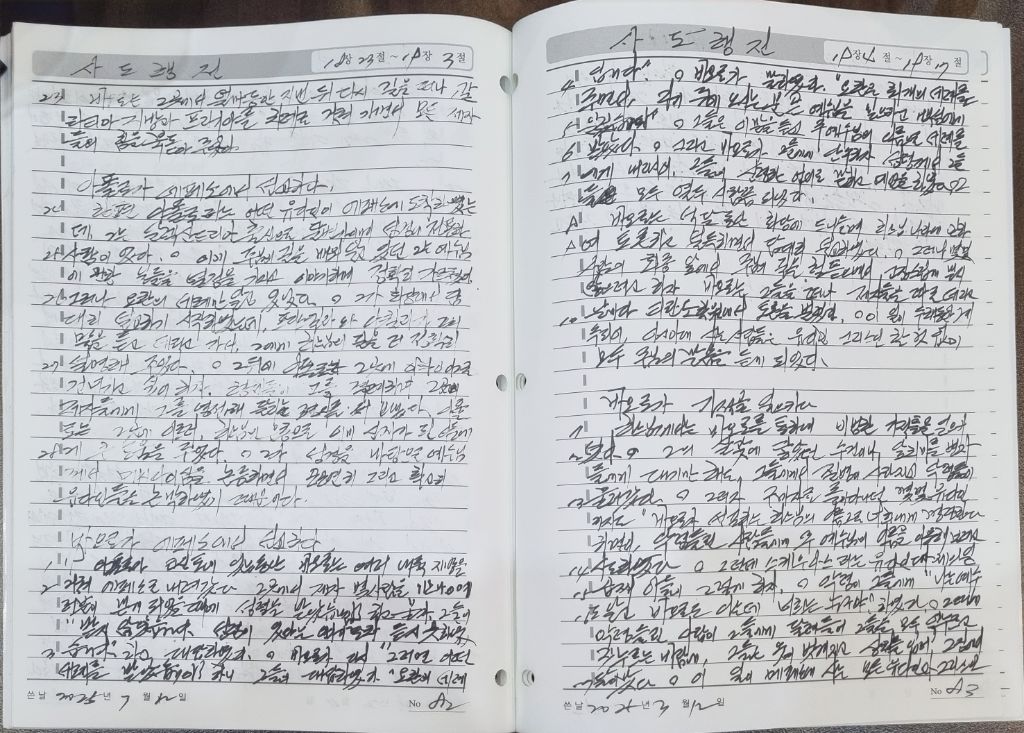 사도행전 18장 23절 ~ 19장 3절
23 바오로는 그곳에서 얼마동안 지낸 뒤 다시 길을 떠나 갈
라티아 지방과 프리기아를 차례로 거쳐 가면서 모든 제자
들의 힘을 북돋아 주었다.
아폴로가 에페소에서 선교하다.
24 한편 아폴로라는 어떤 유다인이 에페소에 도착하였는
데, 그는 알렉산드리아 출신으로 달변가이며 성경에 정통한
25 사람이었다. ○ 이미 주님의 길을 배워 알고 있던 그는 예수님
에 관한 일들을 열정을 가지고 이야기하며 정확히 가르쳤다.
그러나 요한의 세례만 알고 있었다. ○ 그가 회당에서 담
대히 설교하기 시작하였는데, 프리스킬라와 아퀼라가 그의
말을 듣고 데리고 가서, 그에게 하느님의 길을 더 정확히
27 설명해 주었다. ○ 그 뒤에 아폴로가 아카이아로
건너가고 싶어 하자, 형제들이 그를 격려하며, 그곳의
제자들에게 그를 영접해 달라는 편지를 써 보냈다. 아폴
로는 그곳에 이르러, 하느님의 은총으로 이미 신자가 된 이들에
28 게 큰 도움을 주었다. ○ 그가 성경을 바탕으로 예수님
께서 메시아이심을 논증하면서, 공공연히 그리고 확고히
유다인들을 논박하였기 때문이다.
바오로가 에페소에서 선교하다
1 아폴로가 코린토에 있는 동안, 바오로는 여러 내륙 지방을
2 거쳐 에페소로 내려갔다. 그곳에서 제자 몇 사람을 만나 ○
"받지 않았습니다. 성령이 있다는 이야기조차 듣지 못하였
3 습니다" 하고 대답하였다. ○ 바오로가 다시 "그러면 어떤
세례를 받았습니까?" 하니, 그들이 대답하였다. "요한의 세례
쓴날 2025년 7월 12일 No 82
사도행전 19장 4절 ~ 19장 17절
4 입니다." ○ 바오로가 말하였다. "요한은 회개의 세례를
주면서, 자기 뒤에 오시는 분 곧 예수님을 믿으라고 백성에게
5 ○ 그들은 이 말을 듣고 주 예수님의 이름으로 세례를
6 받았다. ○ 그리고 바오로가 그들에게 안수하자 성령께서 그들
7 에게 내리시어, 그들이 신령한 언어로 말하고 예언을 하였다. ○ 그
들은 모두 열두 사람쯤 되었다.
8 바오로는 석 달 동안 회당에 드나들며 하느님 나라에 관하
9 여 토론하고 설득하면서 담대히 설교하였다. ○ 그러나 몇몇
사람이 회중 앞에서 주님의 길을 헐뜯으면서, 고집스럽게 믿지
않으려고 하자, 바오로는 그들을 떠나 제자들을 따로 데리고
10 날마다 티란노스 학원에서 토론을 벌였다. ○ 이 일이 두 해 동안 계
속되어, 아시아에 사는 사람들은 유다인 그리스인 할 것 없이
모두 주님의 말씀을 듣게 되었다.
바오로가 기적을 일으키다
하느님께서는 바오로를 통하여 비범한 기적들을 일으
키셨다. ○ 그의 살갗에 닿았던 수건이나 앞치마를 병자
들에게 대기만 해도, 그들에게서 질병이 사라지고 악령들이
13 물러갔다. ○ 그러자 구마자로 돌아다니는 몇몇 유다인
까지도 "바오로가 선포하는 예수님의 이름으로 너희에게 명령한다"
하면서, 악령 들린 사람들에게 주 예수님의 이름을 이용해 보려고
14 시도하였다. ○ 그런데 스케우아스라는 유다인 대사제의
일곱 아들이 그렇게 하자, ○ 악령이 그들에게 "나는 예수
도 알고 바오로도 아는데 너희는 누구냐?" 하였다. ○ 그때에
악령 들린 사람이 그들에게 달려들어 그들을 모두
짓누르는 바람에, 그들은 옷이 벗겨지고 상처를 입어 그 집에서
달아났다. ○ 이 일이 에페소에 사는 모든 유다인과 그리스인
쓴날 2025년 7월 12일 No 83